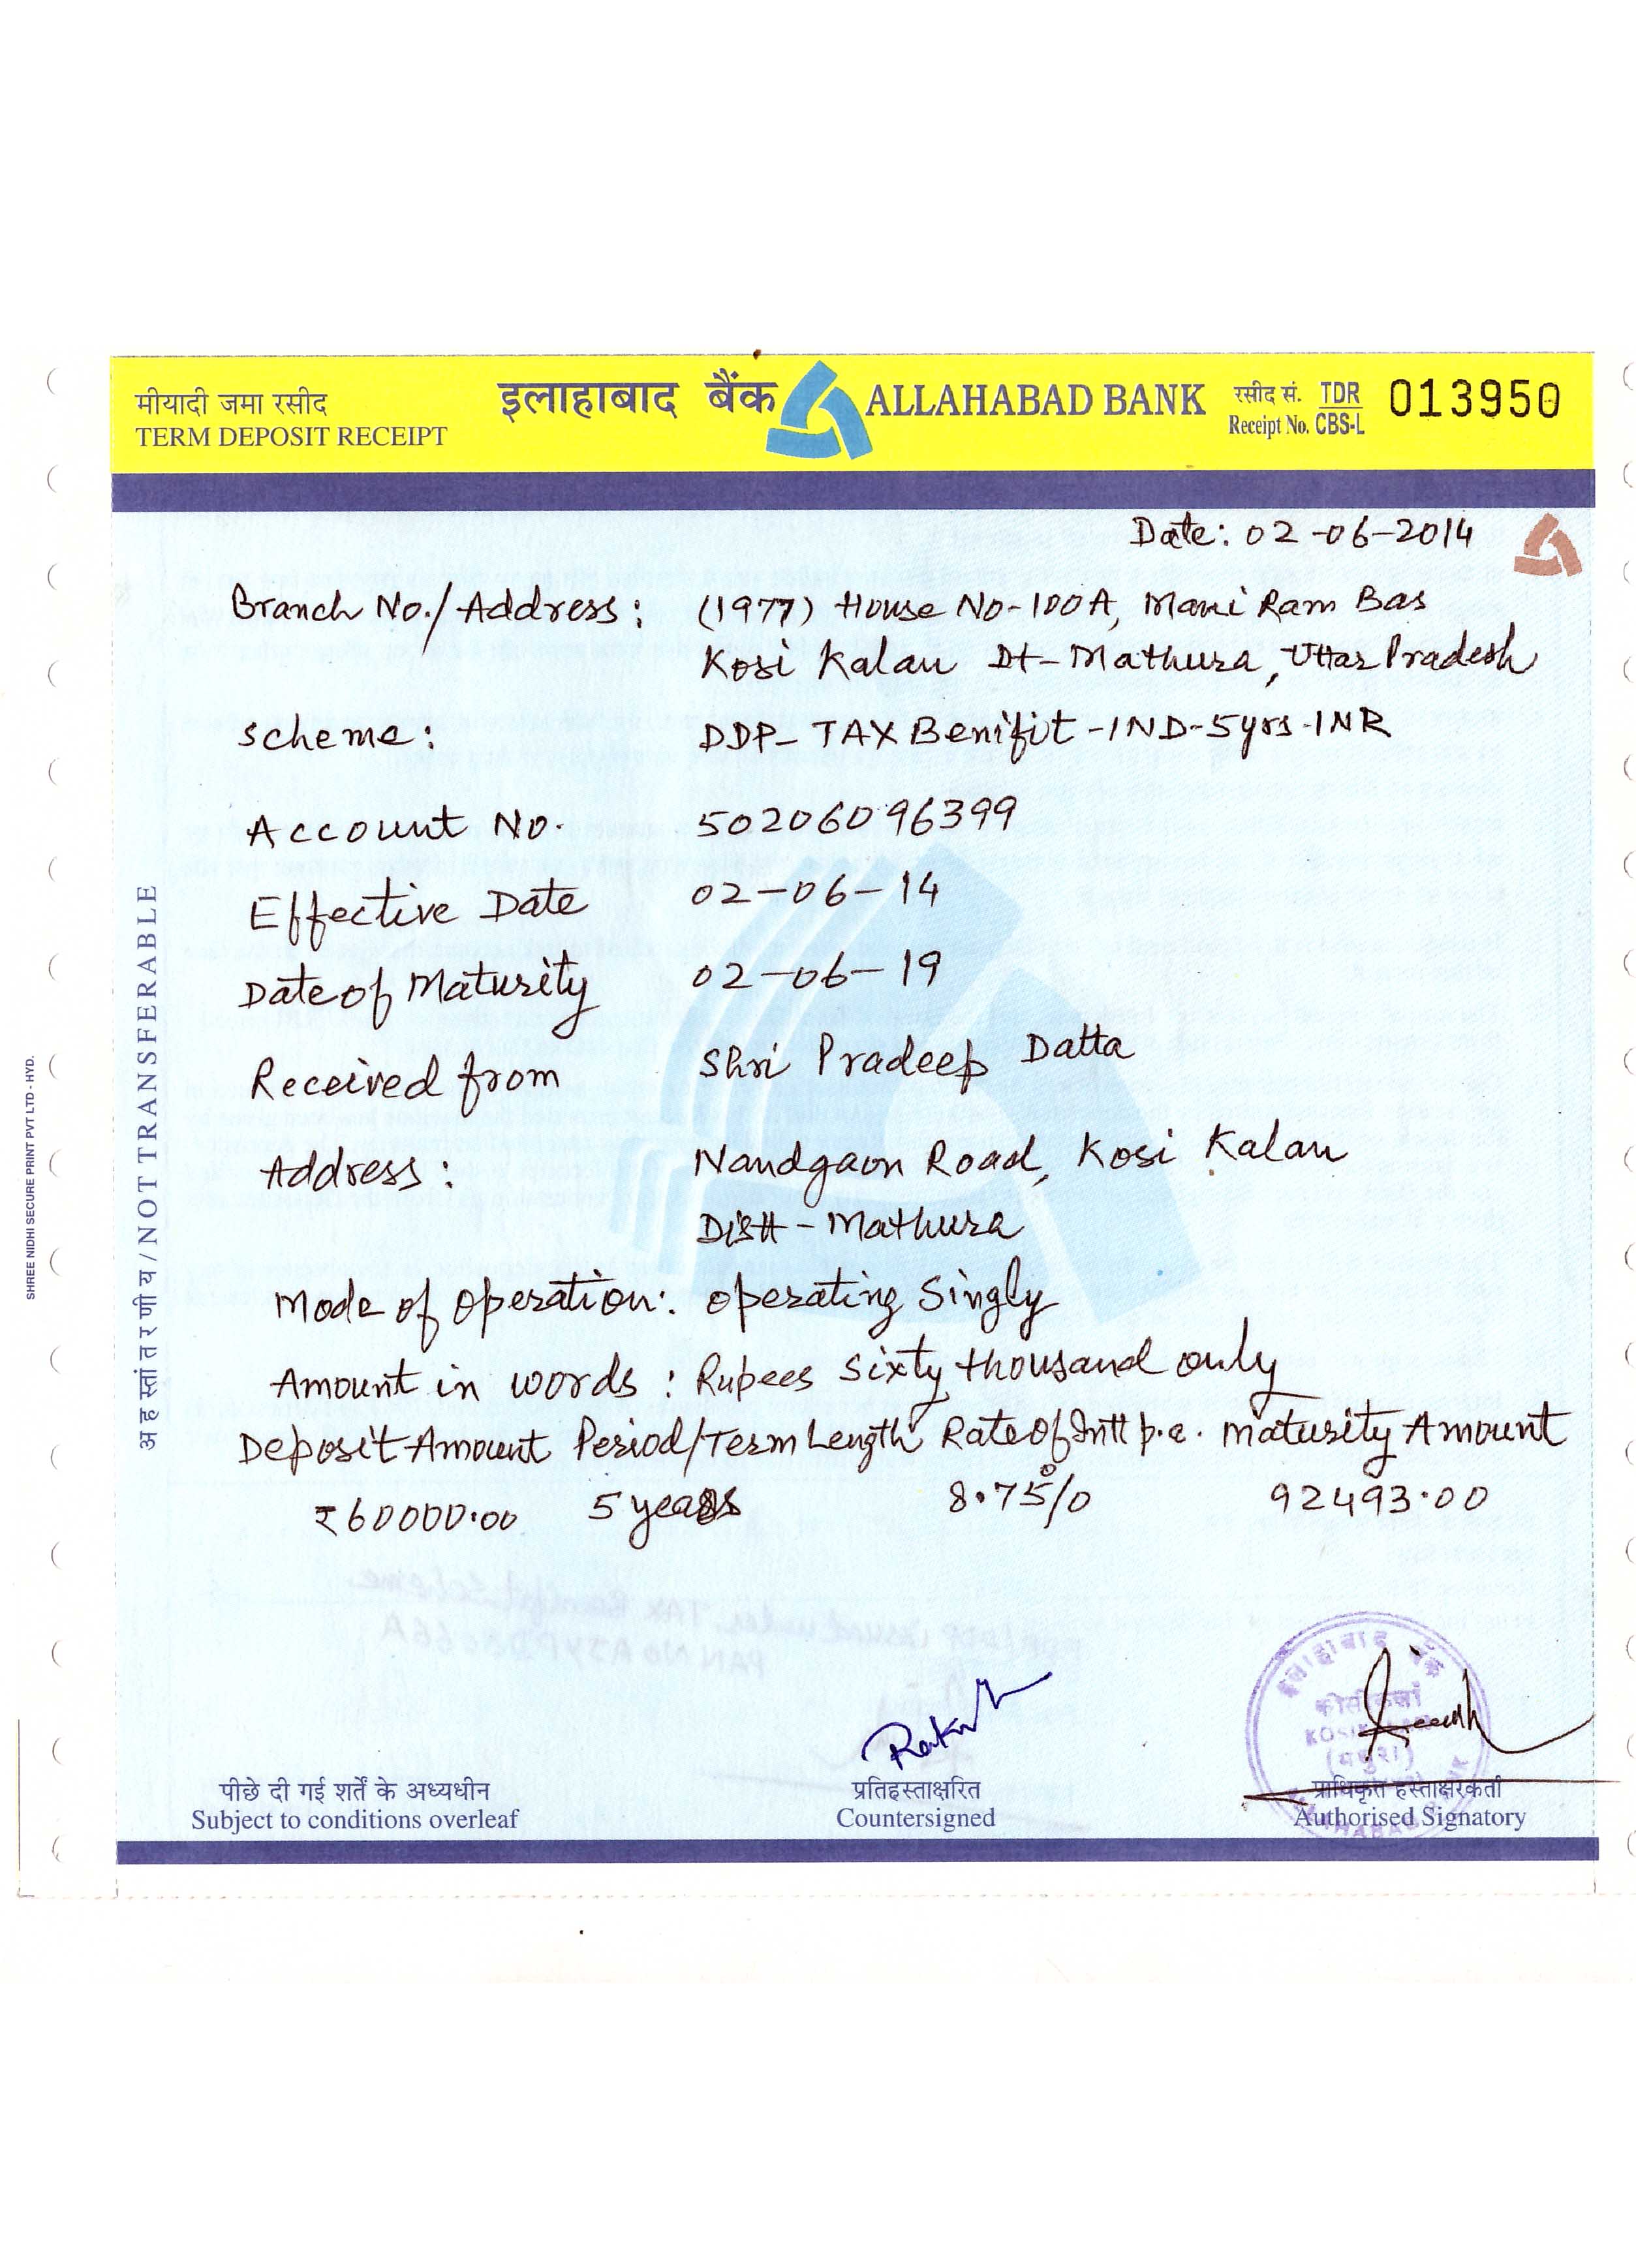 मीयादी जमा रसीद
TERM DEPOSIT RECEIPT
इलाहाबाद बैंक ALLAHABAD BANK
रसीद सं. TDR
Receipt No. CBS-L
013950
Date: 02-06-2014
Branch No./Address: (1977) House No-100A, Mani Ram Bas
Kosi Kalan Dt-Mathura, Uttar Pradesh
Scheme: DDP-TAX Benifit-IND-5yrs-INR
Account No. 50206096399
Effective Date 02-06-14
Date of Maturity 02-06-19
Received from Shri Pradeep Datta
Address: Nandgaon Road, Kosi Kalan
Distt-Mathura
Mode of operation: operating Singly
Amount in words: Rupees Sixty thousand only
Deposit Amount Period/Term Length Rate of Intt p.a. Maturity Amount
₹60000.00 5 years 8.75% 92493.00
अहस्तांतरणीय / NOT TRANSFERABLE
SHREE NIDHI SECURE PRINT PVT LTD - HYD.
इलाहाबाद बैंक
कोसीकलाँ
(मथुरा)
पीछे दी गई शर्तें के अध्यधीन
Subject to conditions overleaf
प्रतिहस्ताक्षरित
Countersigned
प्राधिकृत हस्ताक्षरकर्ता
Authorised Signatory